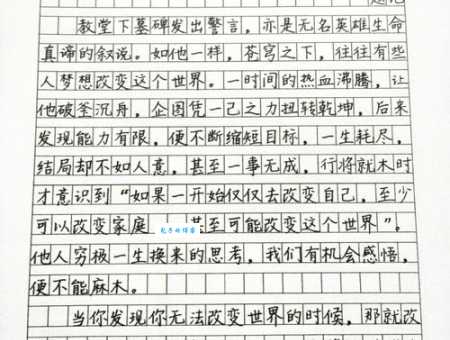 题记
教堂下墓碑发出警言，亦是无名英雄生命
真谛的叙说。如他一样，苍穹之下，往往有些
人梦想改变这个世界。一时间的热血沸腾，让
他破釜沉舟，企图凭一己之力扭转乾坤，后来
发现能力有限，便不断缩短目标，一生耗尽，
结局却不如人意，甚至一事无成，行将就木时
才意识到“如果一开始仅仅去改变自己，至少
可以改变家庭 甚至可能改变这个世界”。
他人穷极一生换来的思考，我们有机会感悟，
便不能麻木。
当你发现你无法改变世界的时候，那就改